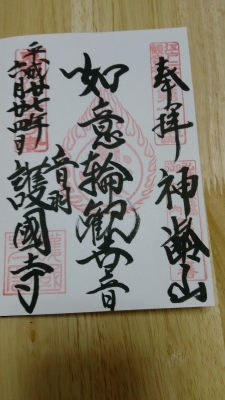 奉拝 神齢山
如意輪観世音
音羽 護國寺
平成廿七年
六月廿四日